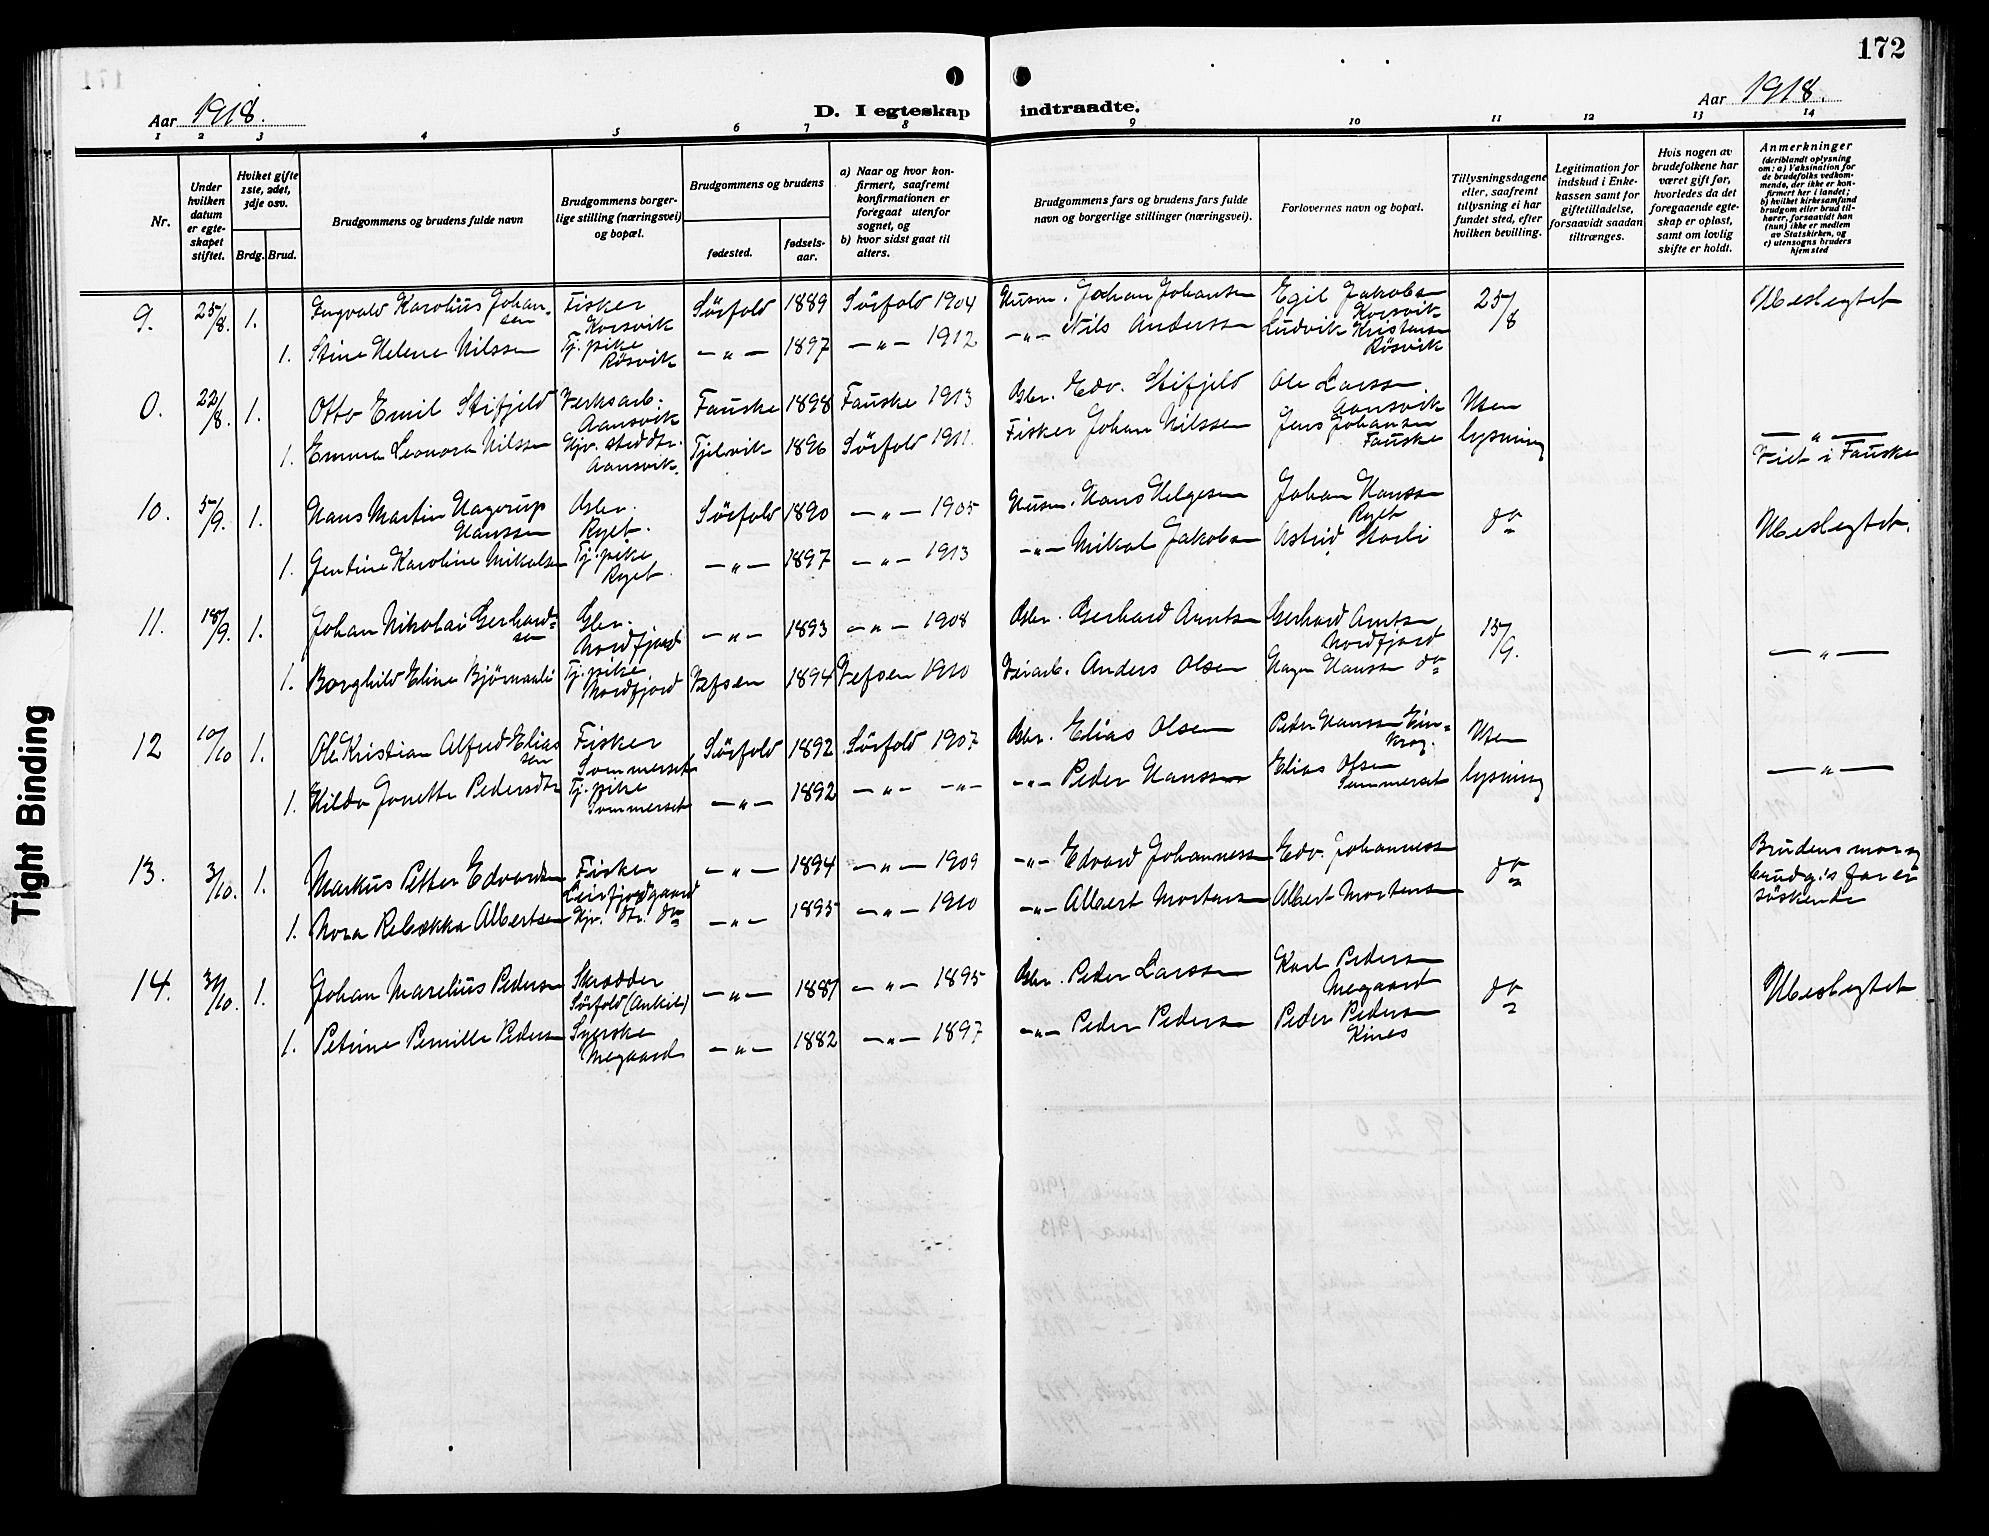 172
Aar 1918.
D. I egteskap indtraadte.
Aar 1918.
1 2 3 4 5 6 7 8 9 10 11 12 13 14
Nr.
Under hvilken datum er egteskapet stiftet.
Hviket gifte 1ste, 2det, 3dje osv.
Brdg. Brud.
Brudgommens og brudens fulde navn
Brudgommens borgerlige stilling (næringsvei) og bopæl.
Brudgommens og brudens
fødested.
fødselsaar.
a) Naar og hvor konfirmert, saafremt konfirmationen er foregaat utenfor sognet, og
b) hvor sidst gaat til alters.
Brudgommens fars og brudens fars fulde navn og borgerlige stillinger (næringsvei).
Forlovernes navn og bopæl.
Tillysningsdagene eller, saafremt tillysning ei har fundet sted, efter hvilken bevilling.
Legitimation for indskud i Enkekassen samt for giftetilladelse, forsaavidt saadan tiltrænges.
Hvis nogen av brudefolkene har været gift før, hvorledes da det foregaaende egteskap er opløst, samt om lovlig skifte er holdt.
Anmerkninger
(deriblandt oplysning om: a) Vaksination for de brudefolks vedkommende, der ikke er konfirmert her i landet; b) hvilket kirkesamfund brudgom eller brud tilhører, forsaavidt han (hun) ikke er medlem av Statskirken, og c) utensogns bruders hjemsted
9. 25/8. 1. Ingvald Karolius Johansen Fisker Korsvik Sörfold 1889 Sörfold 1904 Husm. Johan Johansen Egil Jakobsen Korsvik 25/8 Ubeslegtet
1. Stine Helene Nilssen Tj.pike Rösvik —"— 1897 —"— 1912 —"— Nils Anderssen Ludvik Kristensen Rösvik
0. 22/8. 1. Otto Emil Stifjeld Verksarb. Aansvik Fauske 1898 Fauske 1913 Gbr. Edv. Stifjeld Ole Larssen Aansvik Uten lysning —"—
1. Emma Leonora Nilssen Hjv. steddtr. Aansvik Tjelvik 1896 Sörfold 1911. Fisker Johan Nilssen Jens Johansen Fauske Viet i Fauske
10. 5/9. 1. Hans Martin Hagerup Hanssen Gbr. Ryet. Sörfold 1890 —"— 1905 Husm. Hans Helgesen Johan Hanssen Ryet do Ubeslegtet.
1. Jentine Karoline Mikalsen Tj.pike Ryet —"— 1897 —"— 1913 —"— Mikal Jakobsen Astrid Storli
11. 18/9. 1. Johan Nikolai Gerhardsen Gbr. Nordfjord —"— 1893 —"— 1908 Gbr. Gerhard Arntsen Gerhard Arntsen Nordfjord 15/9. —"—
1. Borghild Eline Bjørnaali Tj.pike Nordfjord Vefsen 1894 Vefsen 1910 Veiarb. Anders Olsen Hagen Hanssen do
12 10/10 1. Ole Kristian Alfred Eliassen Fisker Sommerset Sörfold 1892 Sörfold 1907 Gbr. Elias Olsen Peder Hanssen Uten lysning —"—
1. Hilda Jonette Pedersdtr Tj.pike Sommerset —"— 1892 —"— —"— —"— Peder Hanssen Elias Olsen Sommerset
13. 3/10. 1. Markus Petter Edvardsen Fisker Leirfjordgaard —"— 1894 —"— 1909 —"— Edvard Johannessen Edv. Johannessen do Brudens mor og brudg.'s far er söskende
1. Nora Rebekka Albertsen Hjv. dtr. do —"— 1895 —"— 1910 —"— Albert Mortensen Albert Mortensen
14. 31/10. 1. Johan Marelius Pedersen Skrædder Sörfold —"— 1881 —"— 1895 Gbr. Peder Larssen Karl Pedersen Megaard do Ubeslegtet
1. Petrine Pernille Pedersen Syerske Megaard —"— 1882 —"— 1897 —"— Peder Pedersen Peder Pedersen Kines
Tight Binding